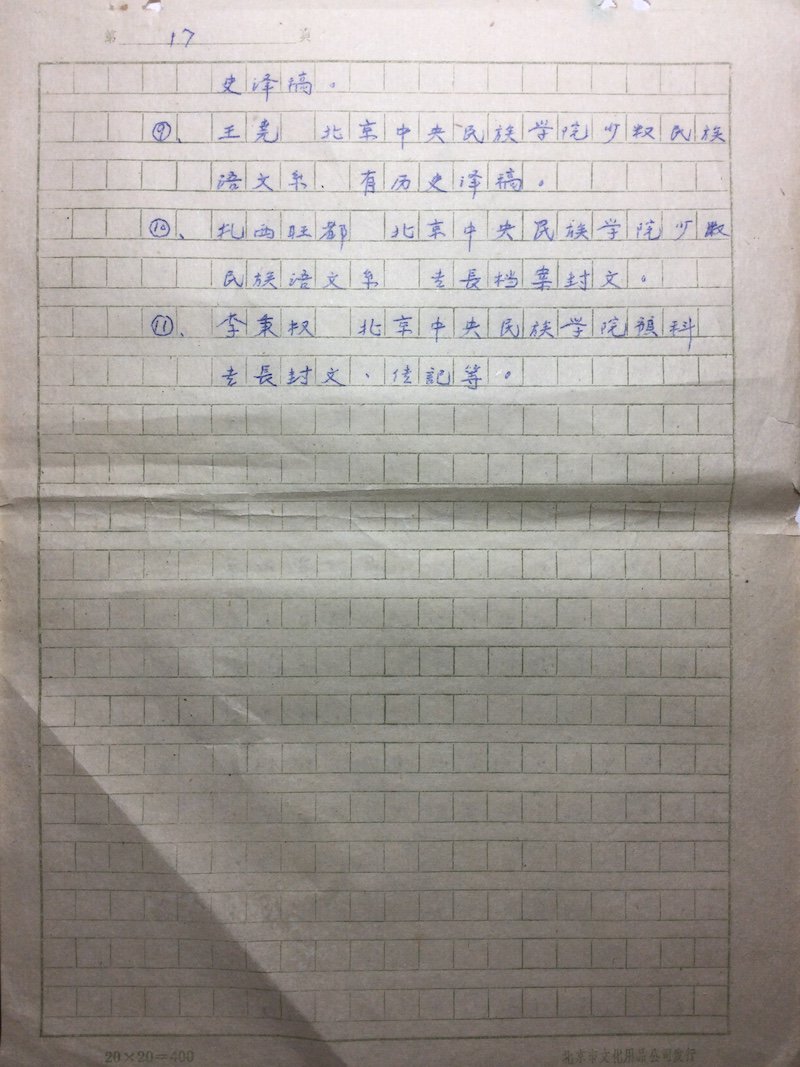 第 17 页
史译稿。
⑨、王尧 北京中央民族学院少数民族
语文系、有历史译稿。
⑩、扎西旺都 北京中央民族学院少数
民族语文系 专長档案封文。
⑪、李秉权 北京中央民族学院预科
专長封文、传記等。
20×20=400
北京市文化用品公司发行